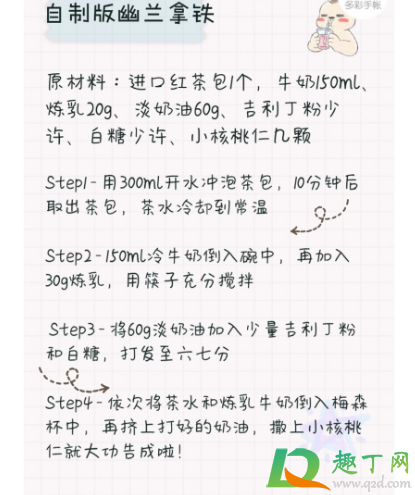 自制版幽兰拿铁
多彩手帐
原材料：进口红茶包1个，牛奶150ml、
炼乳20g、淡奶油60g、吉利丁粉少
许、白糖少许、小核桃仁几颗
Step1-用300ml开水冲泡茶包，10分钟后
取出茶包，茶水冷却到常温
Step2-150ml冷牛奶倒入碗中，再加入
30g炼乳，用筷子充分搅拌
Step3-将60g淡奶油加入少量吉利丁粉
和白糖，打发至六七分
Step4-依次将茶水和炼乳牛奶倒入梅森
杯中，再挤上打好的奶油，撒上小核桃
仁就大功告成啦！
趣丁网
www.qzd.com